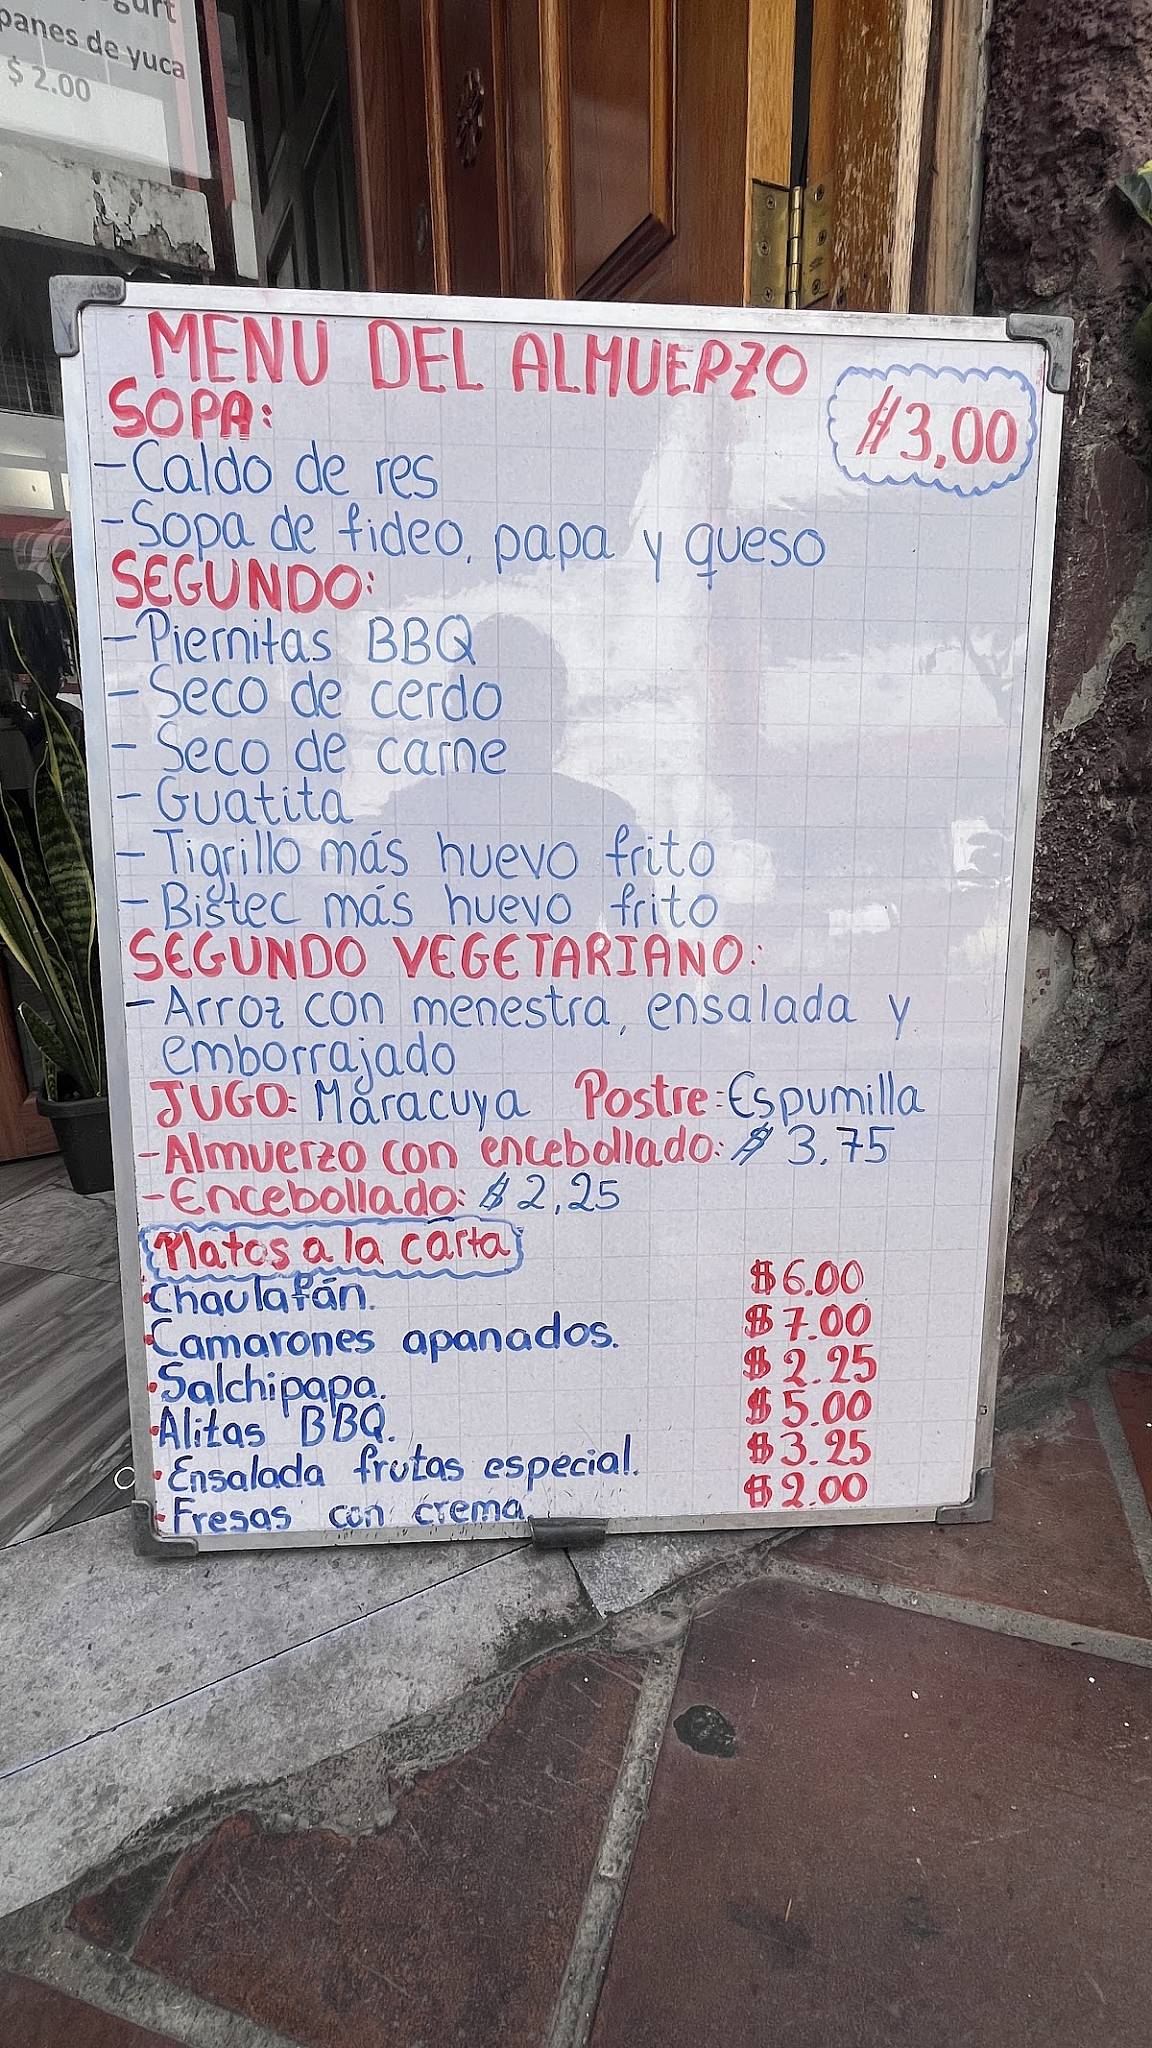 panes de yuca
$ 2.00
MENU DEL ALMUERZO
$3,00
SOPA:
-Caldo de res
-Sopa de fideo, papa y queso
SEGUNDO:
-Piernitas BBQ
-Seco de cerdo
-Seco de carne
-Guatita
-Tigrillo más huevo frito
-Bistec más huevo frito
SEGUNDO VEGETARIANO:
-Arroz con menestra, ensalada y
emborrajado
JUGO: Maracuya Postre: Espumilla
-Almuerzo con encebollado: $ 3.75
-Encebollado: $ 2,25
Platos a la carta
•Chaulafán. $6.00
•Camarones apanados. $7.00
•Salchipapa. $2.25
•Alitas BBQ. $5.00
•Ensalada frutas especial. $3.25
•Fresas con crema. $2.00